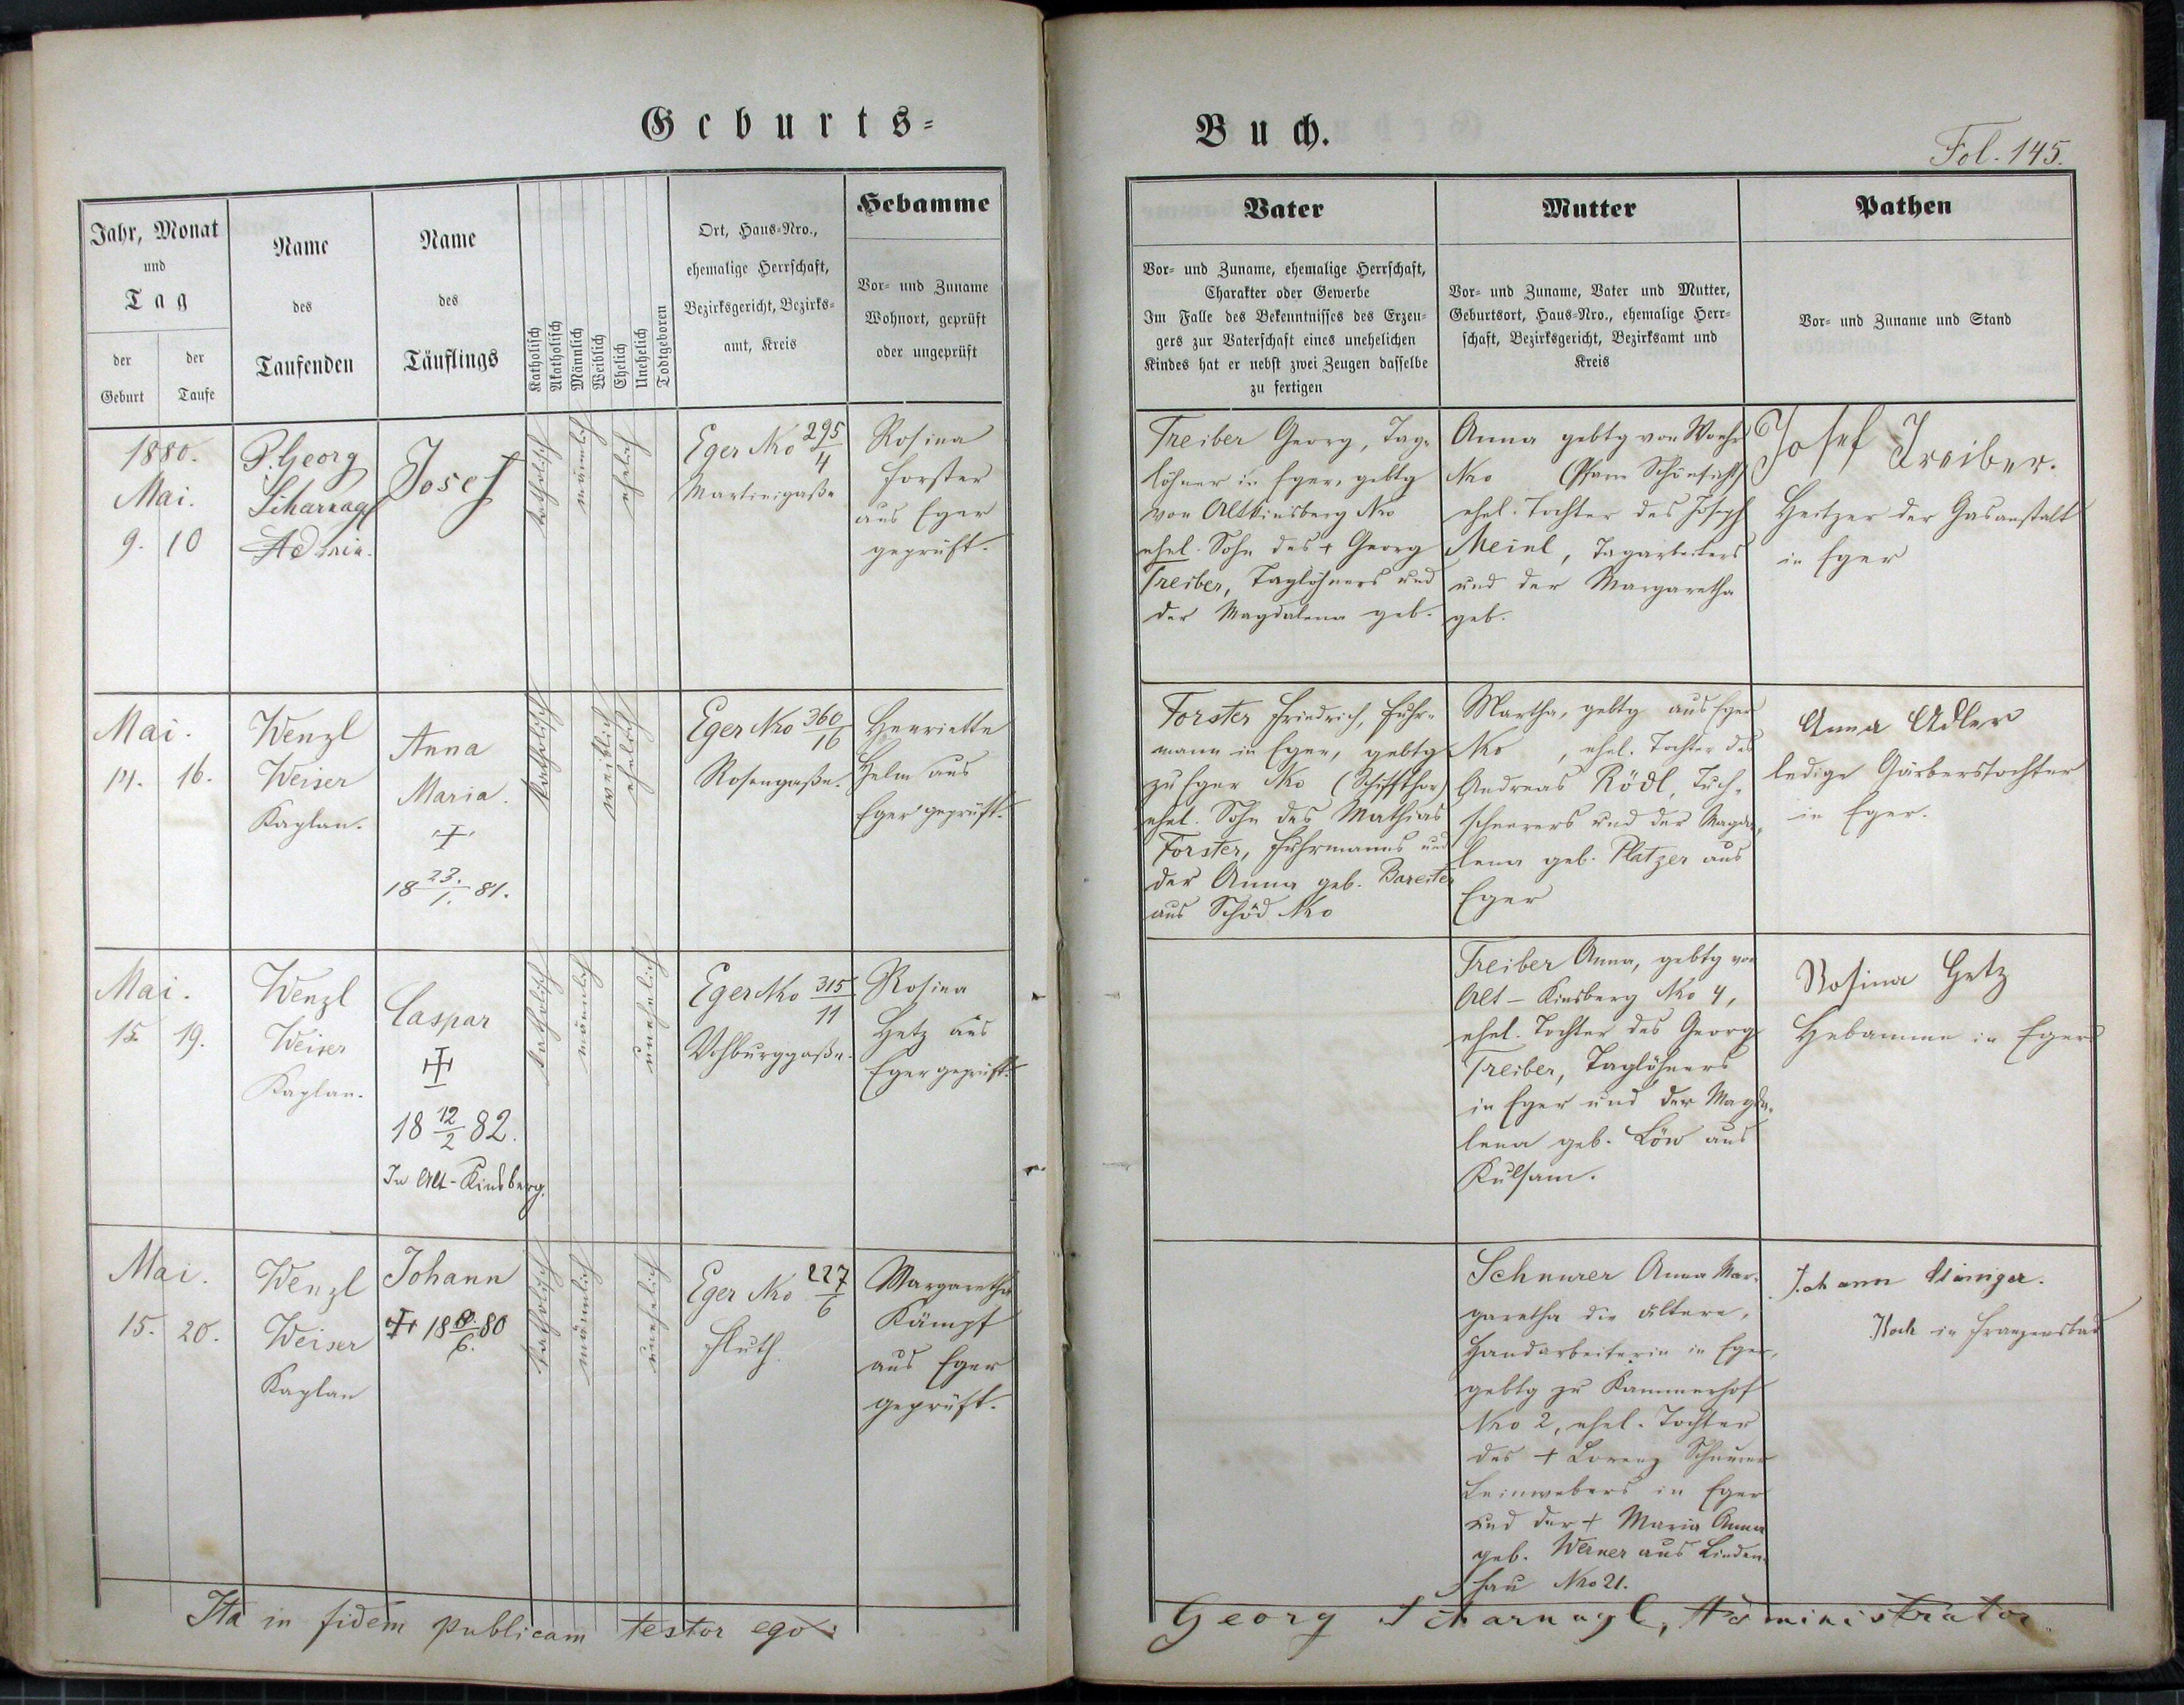 Geburts-
Buch.
Fol. 145.
Jahr, Monat
und
Tag
der
Geburt
der
Taufe
Name
des
Taufenden
Name
des
Täuflings
Katholisch
Akatholisch
Männlich
Weiblich
Ehelich
Unehelich
Todtgeboren
Ort, Haus-Nro.,
ehemalige Herrschaft,
Bezirksgericht, Bezirks-
amt, Kreis
Hebamme
Vor- und Zuname
Wohnort, geprüft
oder ungeprüft
Vater
Vor- und Zuname, ehemalige Herrschaft,
Charakter oder Gewerbe
Im Falle des Bekenntnisses des Erzeu-
gers zur Vaterschaft eines unehelichen
Kindes hat er nebst zwei Zeugen dasselbe
zu fertigen
Mutter
Vor- und Zuname, Vater und Mutter,
Geburtsort, Haus-Nro., ehemalige Herr-
schaft, Bezirksgericht, Bezirksamt und
Kreis
Pathen
Vor- und Zuname und Stand
1880.
Mai.
9. 10
P. Georg
Scharnagl
Josef
katholisch
männlich
ehelich
Eger Nro 295/4
Martinigaße
Rosina
Forster
aus Eger
geprüft.
Treiber Georg, Tag-
löhner in Eger, gebtg
von Altkinsberg Nro
ehel. Sohn des + Georg
Treiber, Taglöhners und
der Magdalena geb.
Anna gebtg von
Nro (Pfarre Schönficht)
ehel. Tochter des Joseph
Meinl, Tagarbeiters
und der Margaretha
geb.
Josef Treiber.
Heitzer der Gasanstalt
in Eger
Mai.
14. 16.
Wenzl
Weiser
Kaplan.
Anna
Maria.
+
18 23./1. 81.
katholisch
weiblich
ehelich
Eger Nro 360/16
Rosengaße.
Henriette
Helm aus
Eger geprüft.
Forster Friedrich, Fuhr-
mann in Eger, gebtg
zu Eger Nro (Schiffthor)
ehel. Sohn des Mathias
Forster, Fuhrmanns und
der Anna geb. Bareiter
aus Schöd Nro
Martha, gebtg aus Eger
Nro , ehel. Tochter des
Andreas Rödl, Tuch-
scheerers und der Magda-
lena geb. Platzer aus
Eger
Anna Adler
ledige Gärberstochter
in Eger.
Mai.
15. 19.
Wenzl
Weiser
Kaplan.
Caspar
+
18 12/2 82.
In Alt-Kinsberg.
katholisch
männlich
unehelich
Eger Nro 315/11
Vohburggaße.
Rosina
Hetz aus
Eger geprüft.
Treiber Anna, gebtg von
Alt-Kinsberg Nro 4,
ehel. Tochter des Georg
Treiber, Taglöhners
in Eger und der Magda-
lena geb. Löw aus
Kulsam.
Rosina Hetz
Hebamme in Eger
Mai.
15. 20.
Wenzl
Weiser
Kaplan
Johann
+ 18 8./6. 80
katholisch
männlich
unehelich
Eger Nro 227/6
Fluth.
Margaretha
Kämpf
aus Eger
geprüft.
Schnurer Anna Mar-
garetha die ältere,
Handarbeiterin in Eger,
gebtg zu Kammerhof
Nro 2, ehel. Tochter
des + Lorenz Schnurer
Leinwebers in Eger
und der + Maria Anna
geb. Werner aus Linden-
hau Nro 21.
Johann
Koch in Franzensbad
Ita in fidem publicam testor ego:
Georg Scharnagl, Administrator.